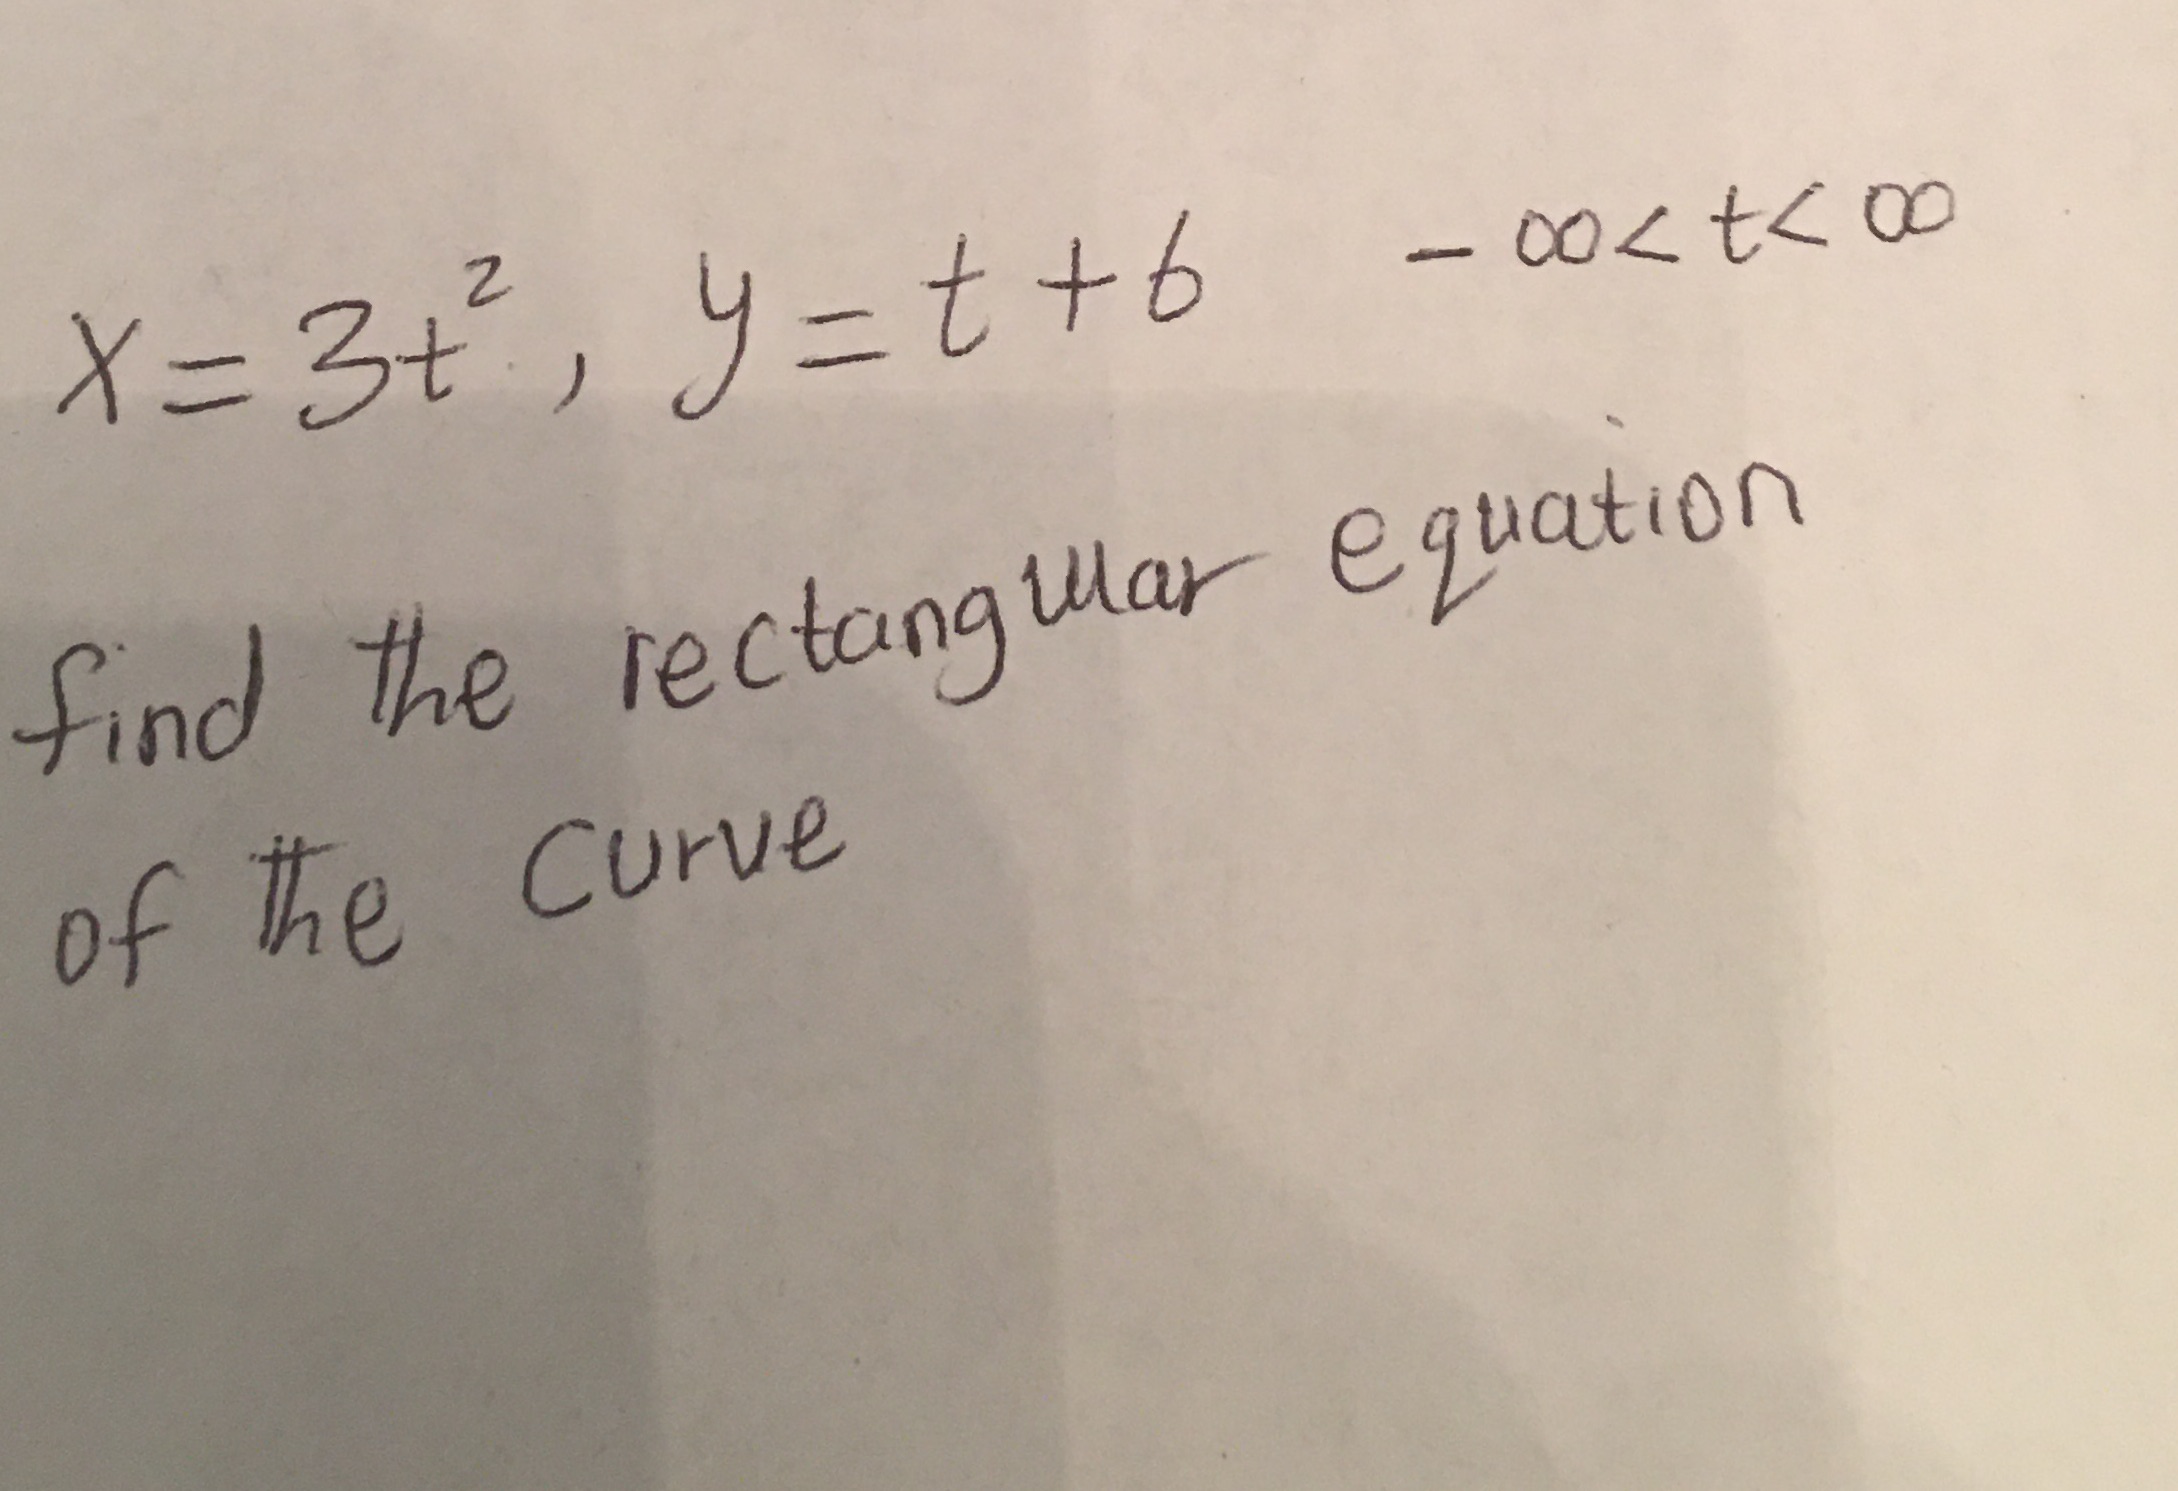 x = 3t², y = t + 6 -∞ < t < ∞
find the rectangular equation
of the curve